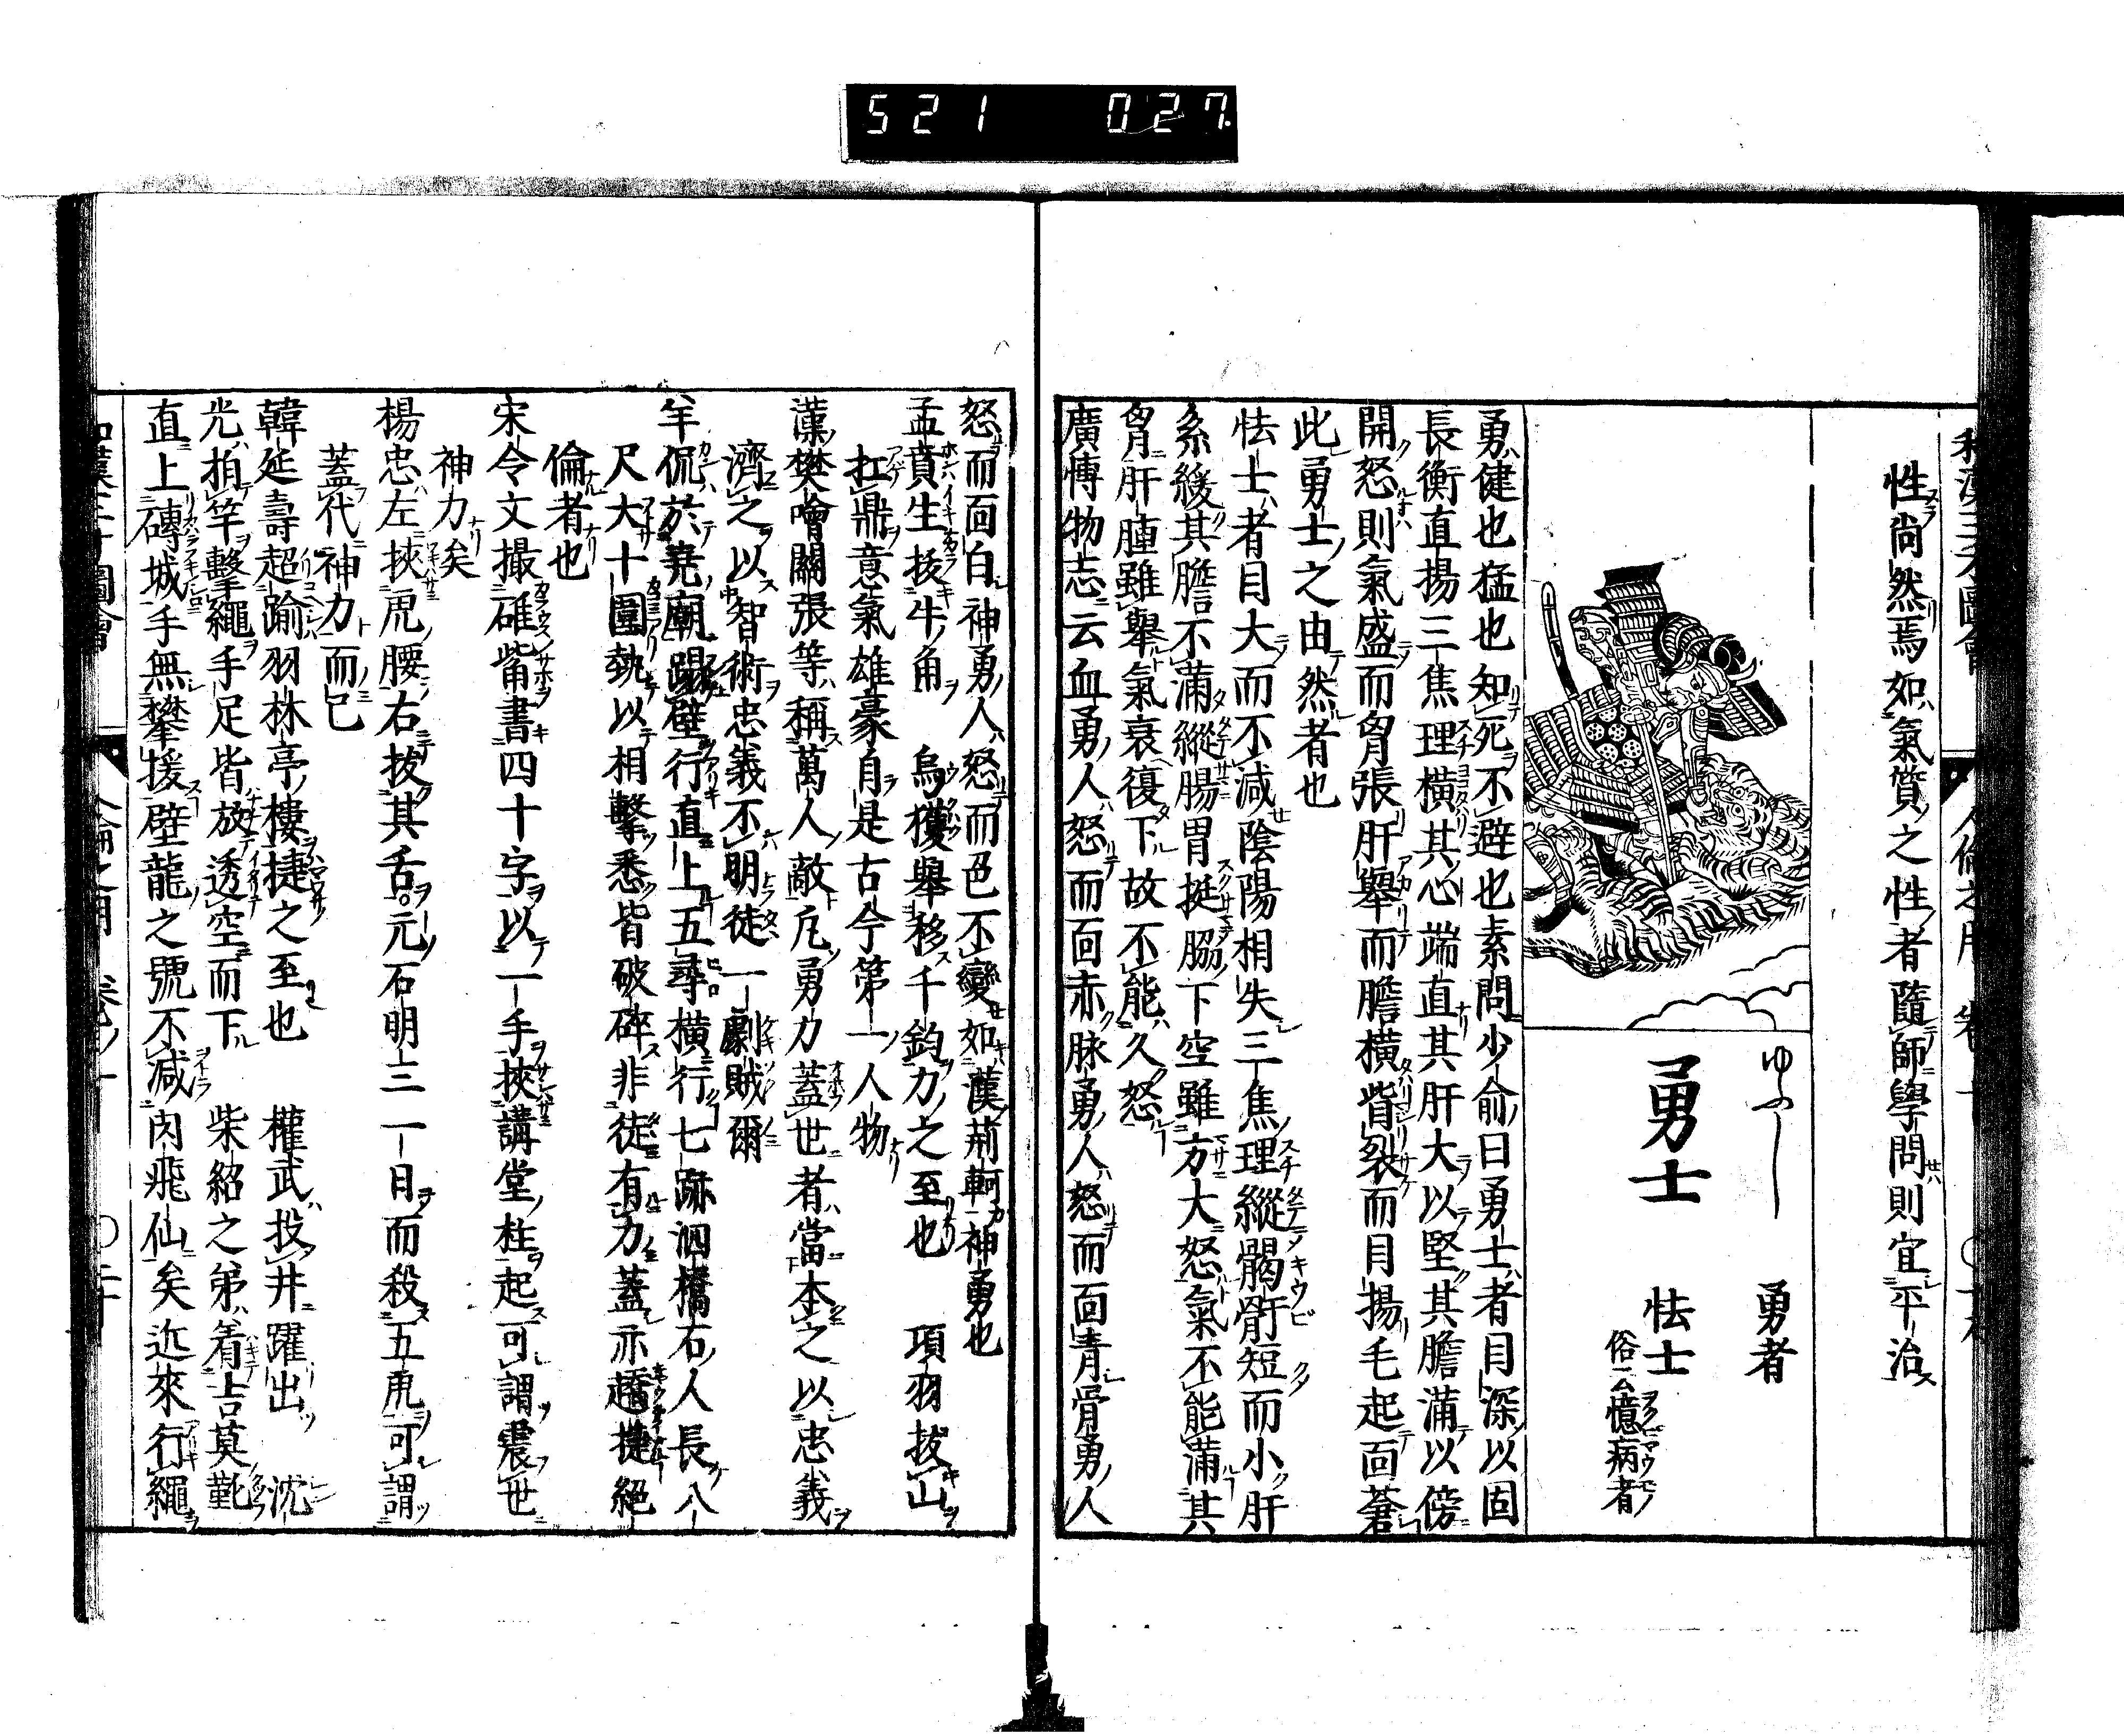 521 027
性尚然焉如氣質之性者隨師學問則宜平治
ゆう
勇者
勇士
怯士
俗云憶病者
勇健也猛也知死不避也素問少俞曰勇士者目深以固
長衡直揚三焦理橫其心端直其肝大以堅其膽滿以傍
開怒則氣盛而胷張肝舉而膽橫眥裂而目揚毛起面蒼
此勇士之由然者也
怯士者目大而不減陰陽相失三焦理縱𩩲骬短而小肝
系緩其膽不滿縱腸胃挺脇下空雖方大怒氣不能滿其
胷肝腫雖舉氣衰復下故不能久怒
廣愽物志云血勇人怒而面赤脉勇人怒而面青骨勇人
怒而面白神勇人怒而色不變如漢荊軻神勇也
孟賁生拔牛角 烏獲舉移千鈞力之至也 項羽拔山
扛鼎意氣雄豪自是古今第一人物
漢樊噲關張等稱萬人敵凡勇力蓋世者當本之以忠義
濟之以智術忠義不明徒一劇賊爾
羊侃於堯廟蹋壁行直上五尋橫行七跡泗橋石人長八
尺大十圍執以相擊悉皆破碎非徒有力蓋亦趫捷絕
倫者也
宋令文撮碓觜書四十字以一手挾講堂柱起可謂震世
神力矣
楊忠左挾虎腰右拔其舌元石明三一日而殺五虎可謂
蓋代神力而已
韓延壽超踰羽林亭樓捷之至也 權武投井躍出 沈
光拍竿擊繩手足皆放透空而下 柴紹之弟着吉莫鞾
直上磚城手無攀援壁龍之號不減肉飛仙矣近來行繩